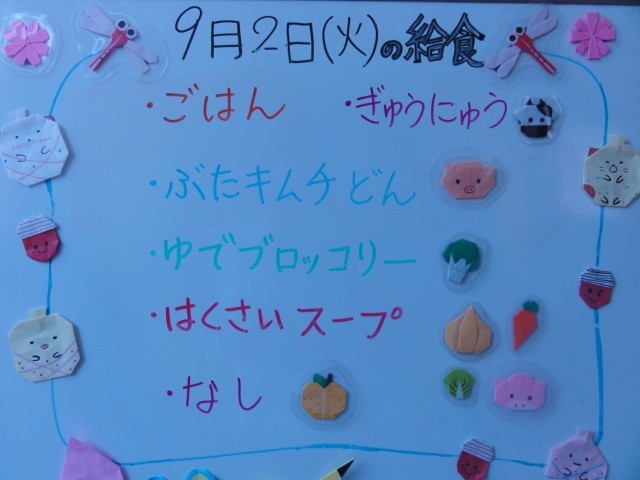 9月2日(火)の給食
・ごはん ・ぎゅうにゅう
・ぶたキムチどん
・ゆでブロッコリー
・はくさいスープ
・なし